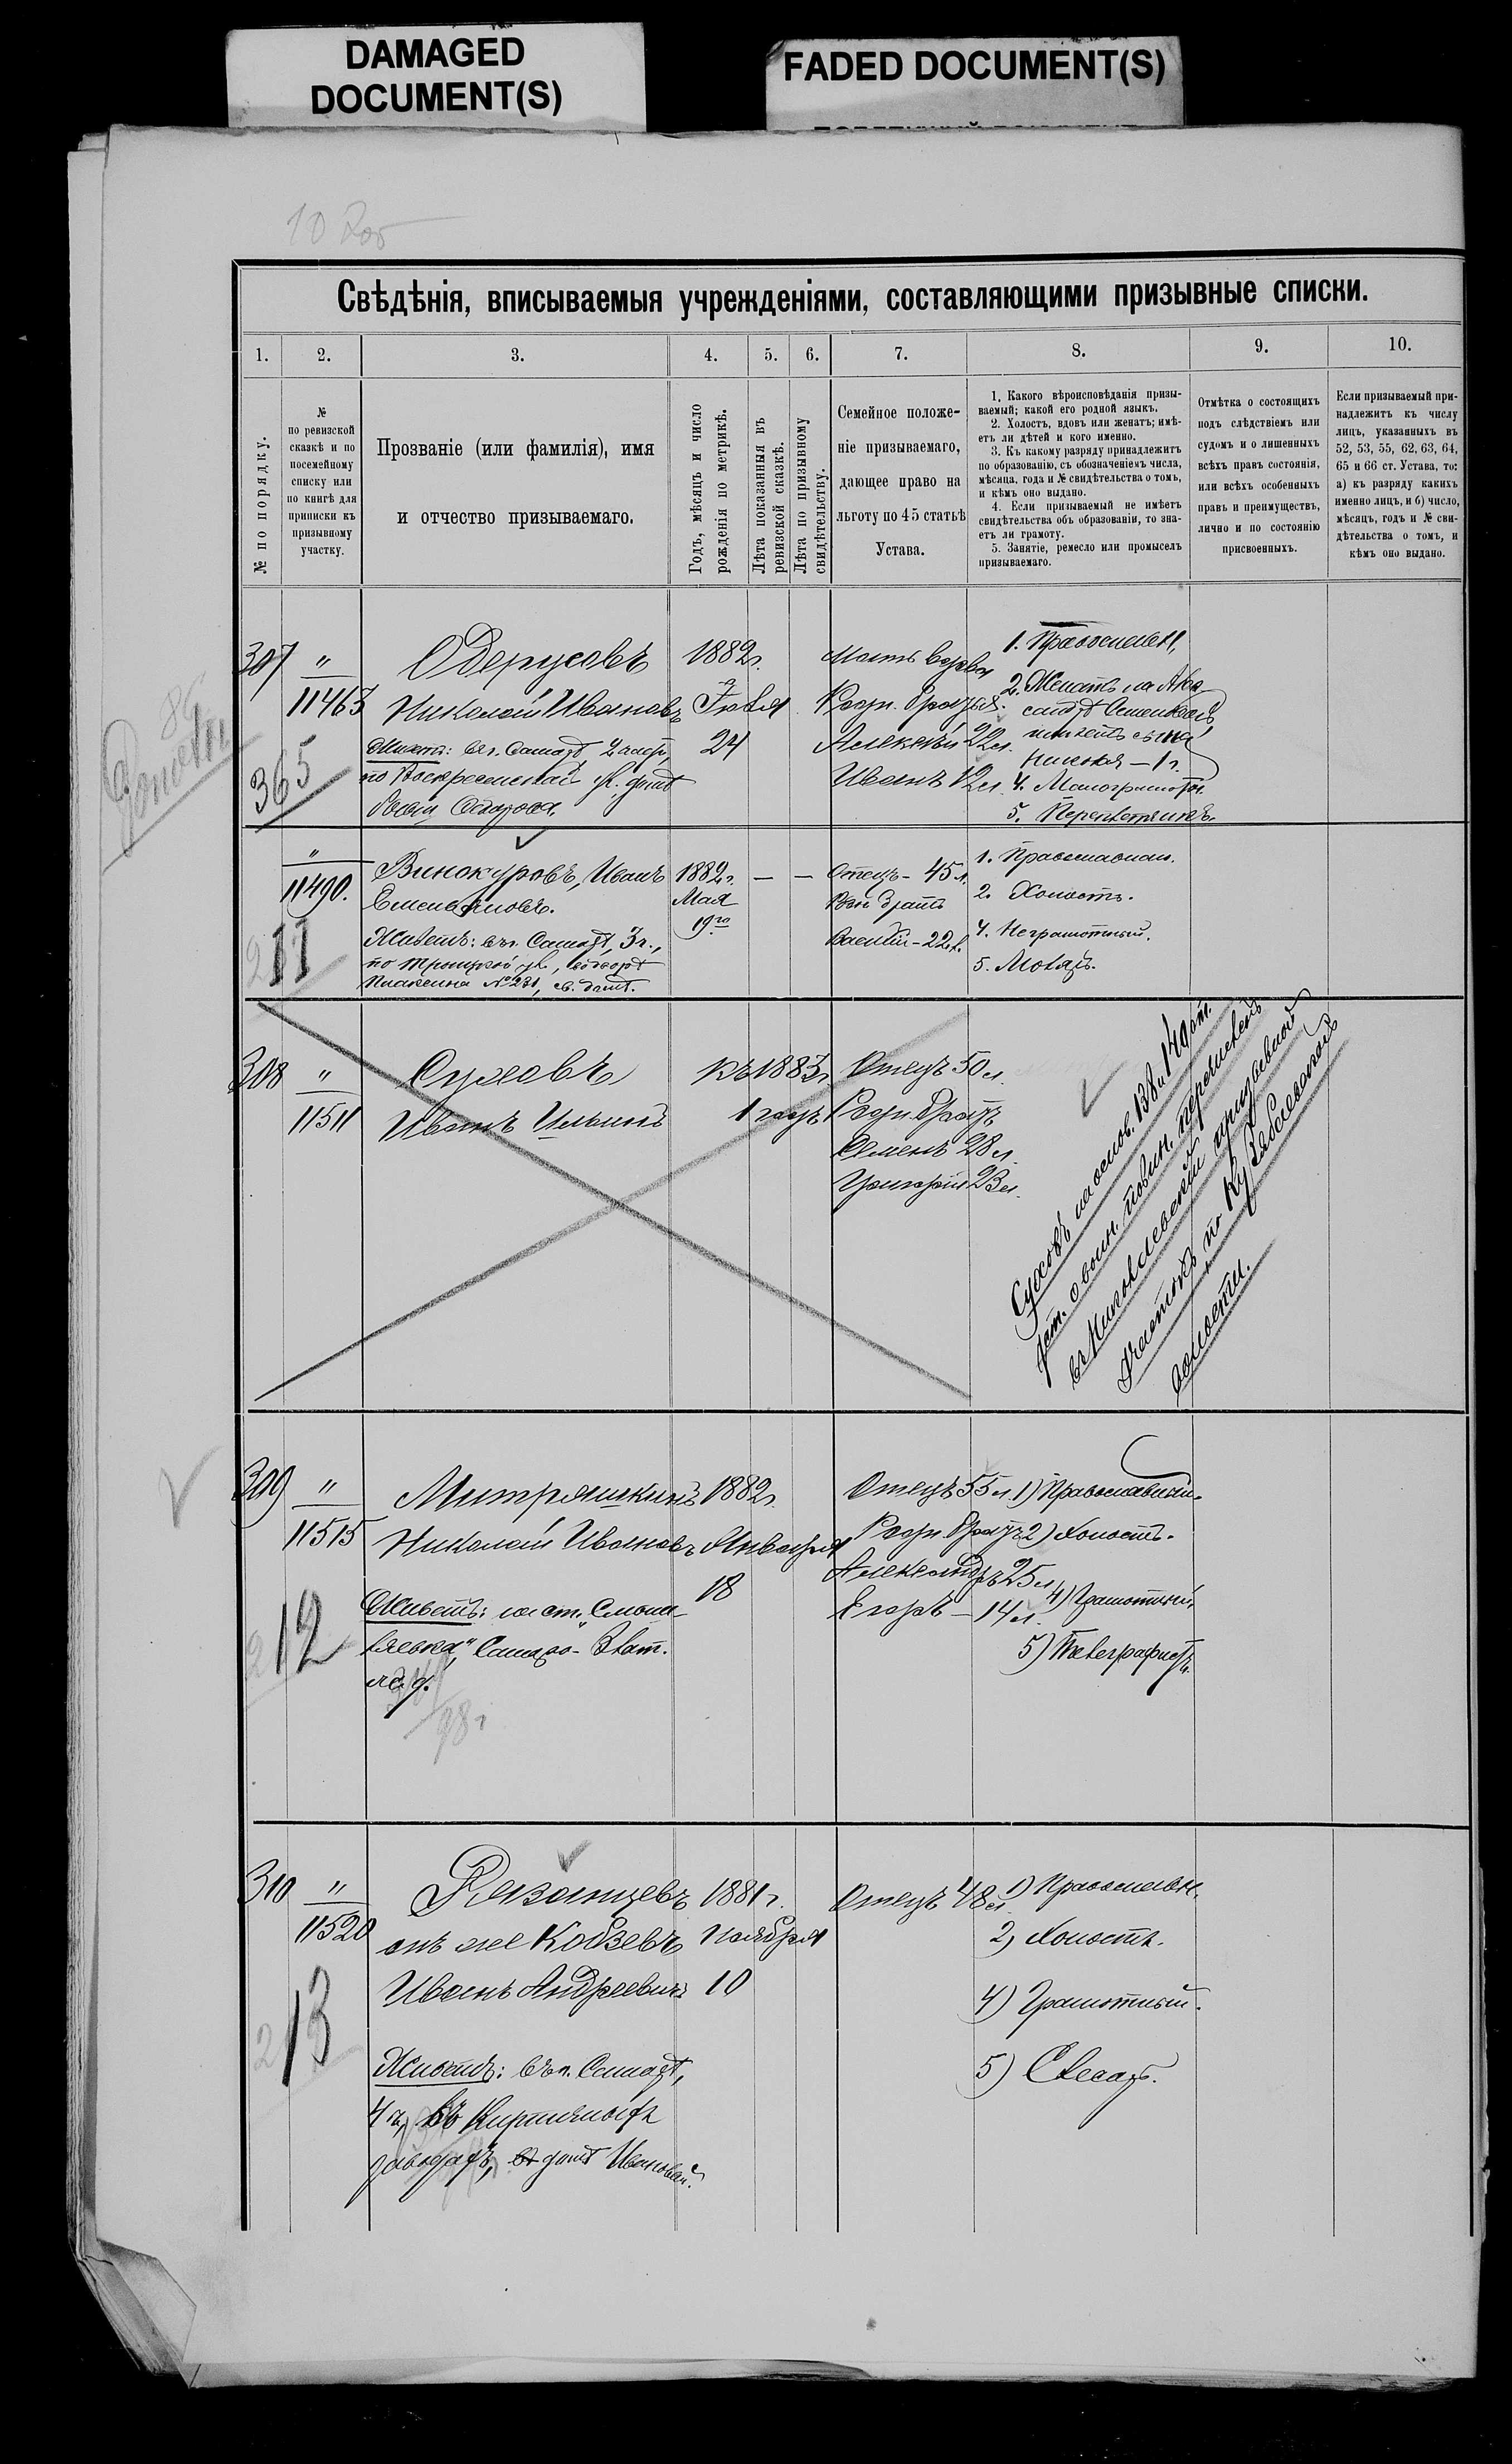 DAMAGED
DOCUMENT(S)
FADED DOCUMENT(S)
Свѣдѣнія, вписываемыя учрежденіями, составляющими призывные списки.
1.
2.
3.
4.
5.
6.
7.
8.
9.
10.
№ по порядку.
№
по ревизской
сказкѣ и по
посемейному
списку или
по книгѣ для
приписки къ
призывному
участку.
Прозваніе (или фамилія), имя
и отчество призываемаго.
Годъ, мѣсяцъ и число
рожденія по метрикѣ.
Лѣта показанныя въ
ревизской сказкѣ.
Лѣта по призывному
свидѣтельству.
Семейное положе-
ніе призываемаго,
дающее право на
льготу по 45 статьѣ
Устава.
1. Какого вѣроисповѣданія призы-
ваемый; какой его родной языкъ.
2. Холостъ, вдовъ или женатъ; имѣ-
етъ ли дѣтей и кого именно.
3. Къ какому разряду принадлежитъ
по образованію, съ обозначеніемъ числа,
мѣсяца, года и № свидѣтельства о томъ,
и кѣмъ оно выдано.
4. Если призываемый не имѣетъ
свидѣтельства объ образованіи, то зна-
етъ ли грамоту.
5. Занятіе, ремесло или промыселъ
призываемаго.
Отмѣтка о состоящихъ
подъ слѣдствіемъ или
судомъ и о лишенныхъ
всѣхъ правъ состоянія,
или всѣхъ особенныхъ
правъ и преимуществъ,
лично и по состоянію
присвоенныхъ.
Если призываемый при-
надлежитъ къ числу
лицъ, указанныхъ въ
52, 53, 55, 62, 63, 64,
65 и 66 ст. Устава, то:
а) къ разряду какихъ
именно лицъ, и б) число,
мѣсяцъ, годъ и № сви-
дѣтельства о томъ, и
кѣмъ оно выдано.
307
"
11463
365
Николай Ивановъ
Живетъ: въ г. Самарѣ, 2 части,
по Воскресенской ул. домѣ
1882 г.
24
Мать вдова
Родн. братья
Алексѣй 22 л.
Иванъ 12 л.
1. Православн,
2. Женатъ на
имѣетъ сына
Николая – 1 г.
4. Малограмотн.
5. Переплетчикъ.
"
11490.
211
Винокуровъ, Иванъ
Емельяновъ.
Живетъ: въ г. Самарѣ, 3 ч.,
по Троицкой ул., въ домѣ
№ 231, св. домѣ.
1882 г.
Мая
19го
— —
Отецъ – 45 л.
братъ
Василій – 22 л.
1. Православн.
2. Холостъ.
4. Неграмотный.
5. Маляръ.
308
"
11511
Суховъ
Иванъ Ильинъ
къ 1883 г.
1 годъ
Отецъ 50 л.
Родн. братъ
Семенъ 28 л.
Григорій 23 л.
Суховъ на основ. 138 и 140 ст.
уст. о воин. повин. перечисленъ
въ Николаевскій призывной
участокъ по Кузябаевской
волости.
309
"
11515
212
Митряшкинъ
Николай Ивановъ
Живетъ: на ст. „Смыш-
ляевка" Самаро-Злат.
ж. д.
1882 г.
Января
18
Отецъ 55 л.
Родн. братъ
Александръ 25 л.
Егоръ – 14 л.
1) Православный.
2) Холостъ.
4) Грамотный,
5) Телеграфистъ.
310
"
11520
213
Рязанцевъ
онъ же Кобзевъ
Иванъ Андреевичъ
Живетъ: въ г. Самарѣ,
4 ч, въ Кирпичныхъ
заводахъ, въ домѣ Ивановой.
1881 г.
Ноября
10
Отецъ 48 л.
1) Православн.
2) Холостъ.
4) Грамотный.
5) Слесарь.